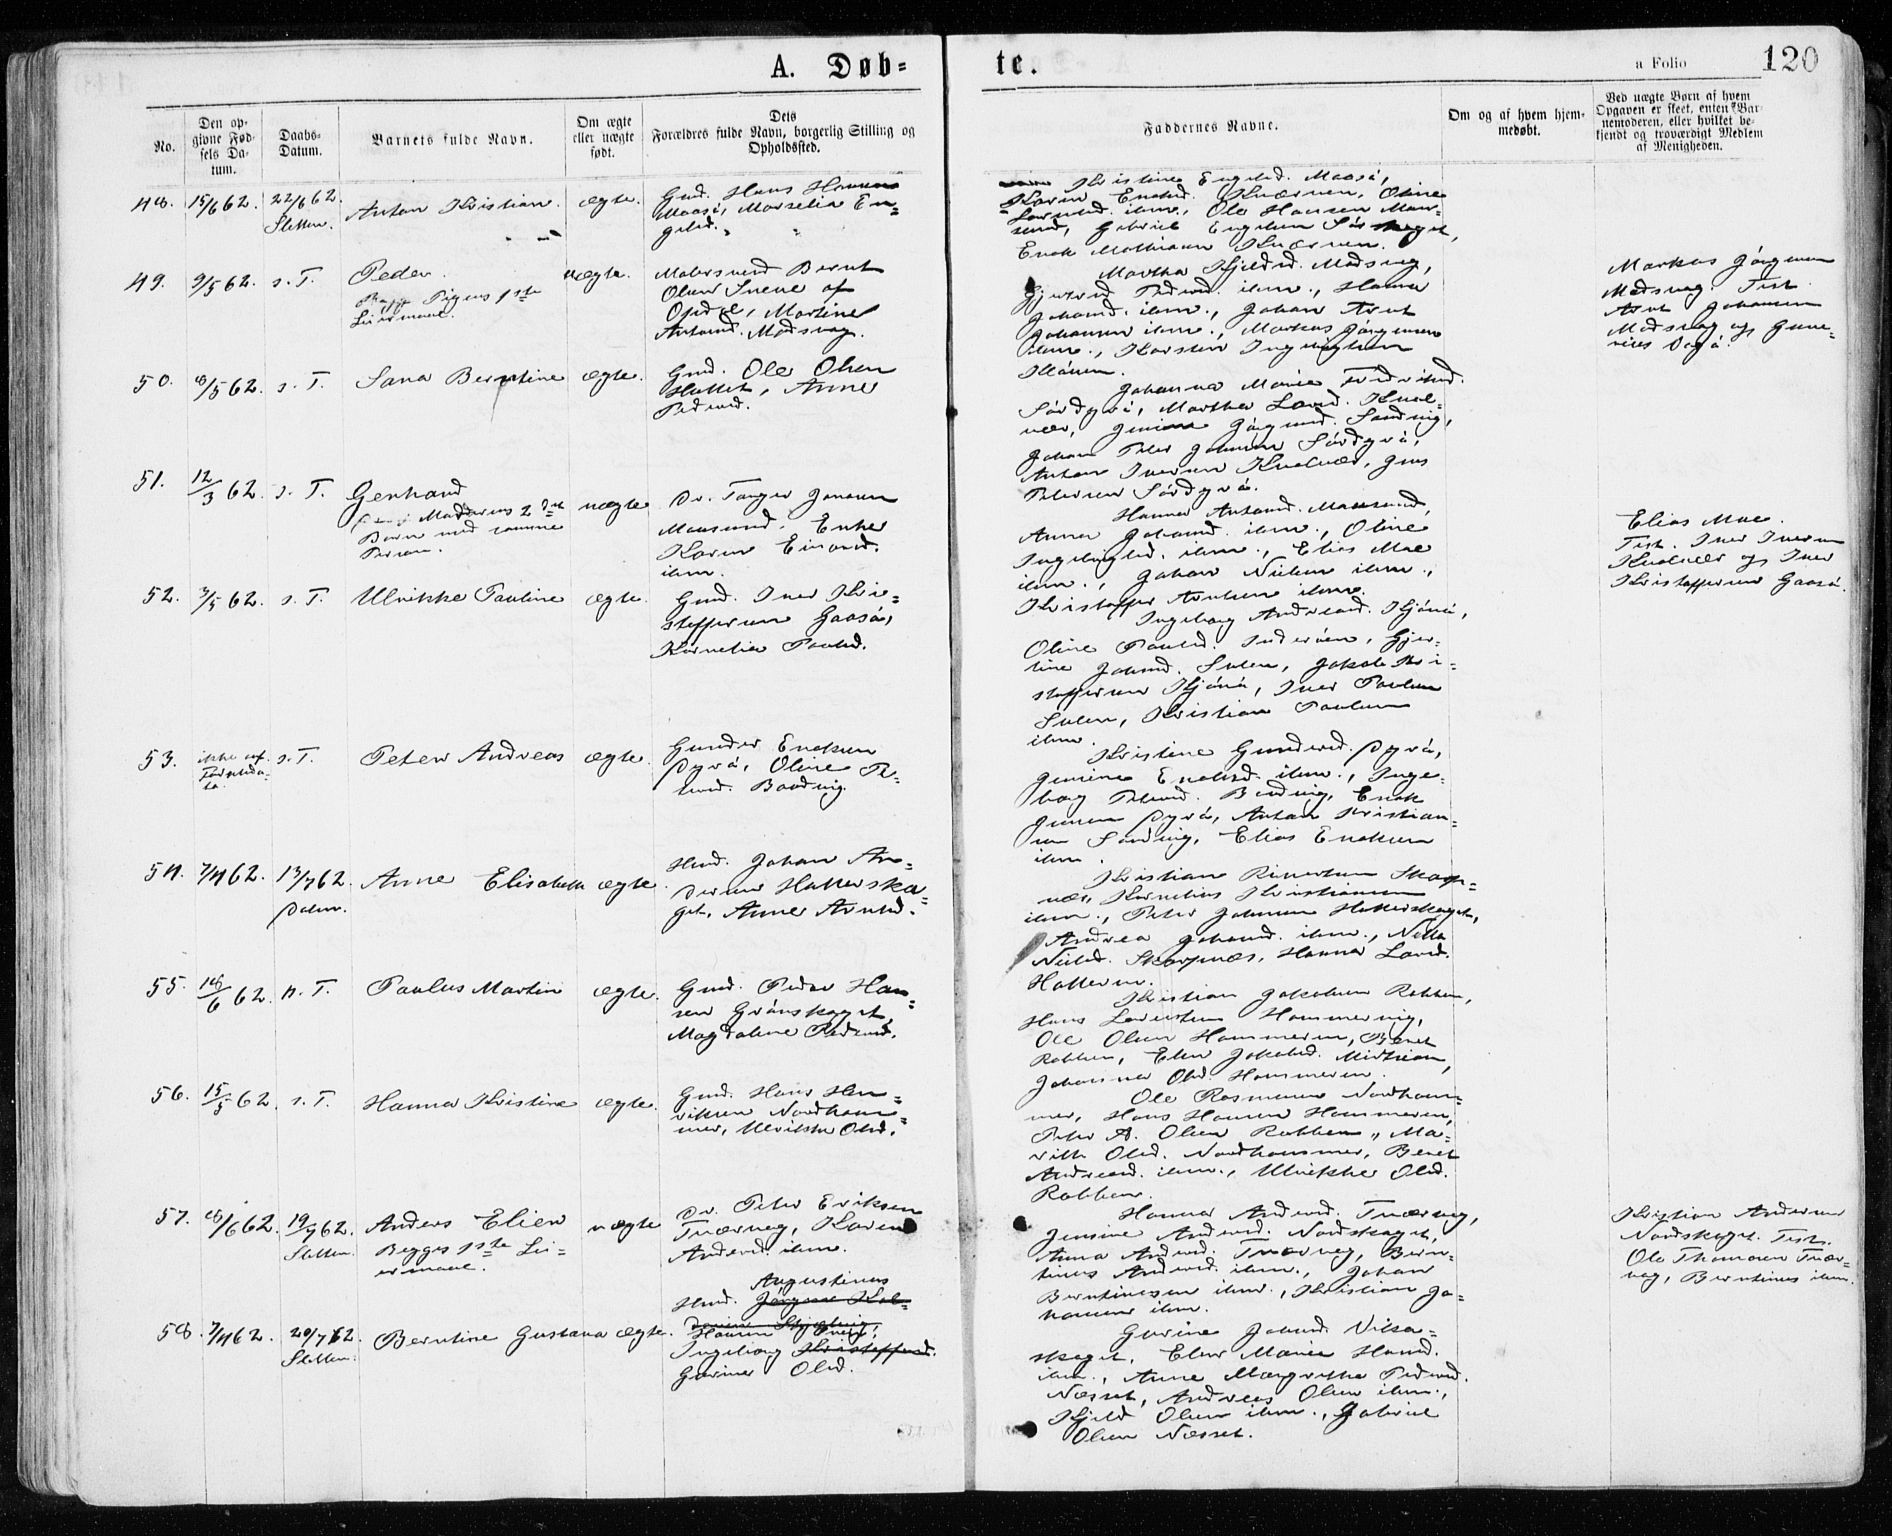 A. Døb=
te.
a Folio 120
No.
Den op-
givne Fød-
sels Da-
tum.
Daabs-
Datum.
Barnets fulde Navn.
Om ægte
eller uægte
født.
Dets
Forældres fulde Navn, borgerlig Stilling og
Opholdssted.
Faddernes Navne.
Om og af hvem hjem-
medøbt.
Ved uægte Børn af hvem
Opgaven er skeet, enten Bar-
nemoderen, eller hvilket be-
kjendt og troværdigt Medlem
af Menigheden.
48. 15/6 62. 22/6 62.
Sletten.
Anton Kristian. ægte.
Gmd. Hans Hansen
Maasø, Marselia En=
gelsd.
Kristine Engelsd. Maasø,
Karen Enoksd. Kværnen, Oline
Larsesd. ibm., Ole Hansen Mau-
sund, Gabriel Engelsen Sørskaget,
Enok Mathiasen Kværnen.
49. 9/5 62. s. T.
Peder.
Pigens 1ste
Leiermaal.
uægte.
Malersvend Bernt
Olsen Snene af
Opdal, Martine
Antonsd. Madsvag.
Martha Kjelsd. Madsvag,
Gjertrud Pedersd. ibm., Hanna
Johansd. ibm., Johan Arnt
Johansen ibm., Markus Jørgensen
ibm., Karsten Ingebrigtsen
Kløven.
Markus Jørgensen
Madsvag. Test.
Arnt Johansen
Madsvag og
50. 8/5 62. s. T. Sara Berntine ægte.
Gmd. Ole Olsen
Hattet, Anne
Pedersd.
Johanna Marie
Sørdyrø, Martha Larsd. Kval=
vær, Jensine Jørgensd. Sandvig,
Johan Peter Johnsen Sørdyrø,
Anton Iversen Kvalvær, Jens
Petersen Sørdyrø.
51. 12/3 62. s. T.
Gerhard
Moderens 2det
Barn med samme
Person.
uægte
Dr. Tanger Jensen
Mausund, Enke
Karen Einarsd.
ibm.
Hanna Antonsd. Mausund,
Anna Johansd. ibm., Oline
Ingebrigtsd. ibm., Elias Moe
ibm., Johan Nielsen ibm.,
Kristoffer Arntsen ibm.
Elias Moe.
Test. Iver Iversen
Kvalvær og Iver
Kristoffersen Gaasø.
52. 3/5 62. s. T. Ulrikke Pauline ægte.
Gmd. Iver Kri=
stoffersen Gaasø,
Kornelia Paulsd.
Ingeborg Andreasd. Kjønø,
Oline Paulsd. Inderøen, Gjer=
tine Johansd. Sulen, Jakob Kri=
stoffersen Kjønø, Iver Paulsen
Sulen, Kristian Paulsen
ibm.
53. ikke opf.
Fødselsda-
to.
s. T. Peter Andreas ægte.
Gunder Enoksen
Dyrø, Oline Pe=
tersd. Bondvig.
Kristine Gundersd. Dyrø,
Jensine Enoksd. ibm., Inge=
borg Petersd. Bondvig, Enok
Jensen Dyrø, Anton Kristian=
sen Sandvig, Elias Enoksen
ibm.
54. 7/4 62. 13/7 62.
Dolm.
Anne Elisabeth ægte.
Hmd. Johan An=
dersen Hatterska=
get, Anne Arntsd.
Kristian Rinertsen Skarp=
næs, Kornelius Kristiansen
ibm., Peter Johansen Hatterskaget,
Andrea Johansd. ibm., Nella
Nielsd. Skarpnæs, Hanna Larsd.
Hatteren.
55. 18/6 62. s. T. Paulus Martin ægte.
Gmd. Peder Han=
sen Grønskaget,
Magdalene Pedersd.
Kristian Jakobsen Rabben,
Hans Lauritsen Hammervig,
Ole Olsen Hammeren, Beret
Rabben, Elen Jakobsd. Midtsian,
Johanna Olsd. Hammeren.
56. 15/5 62. s. T. Hanna Kristine ægte.
Gmd. Hans Hen=
riksen Nordham=
mer, Ulrikke Olsd.
Ole Rasmussen Nordham=
mer, Hans Hansen Hammeren,
Peter A. Olsen Rabben, Ma=
rith Olsd. Nordhammer, Beret
Andreasd. ibm., Ulrikke Olsd.
Rabben.
57. 8/6 62. 19/7 62.
Sletten.
Anders Elien
Begges 1ste Lei=
ermaal.
uægte
Dr. Peter Eriksen
Tværvag, Karen
Andersd. ibm.
Hanna Andersd. Tværvag,
Jensine Andersd. Nordskaget,
Anna Andersd. Tværvag, Bern=
tinus Andersd. ibm., Johan
Berntinussen ibm., Kristian Jo=
hansen ibm.
Kristian Andersen
Nordskaget. Test.
Ole Thomasen Tvær=
vag, Berntinus ibm.
58. 7/4 62. 20/7 62.
Sletten.
Berntine Gustava ægte.
Augustinus
Hmd. Jørgen Kol=
Hansen
Ingeborg Kristoffersd.
Gurine Olsd.
Gurine Johansd. Vika=
skaget, Elen Marie Hansd.
ibm., Anne Margrethe Pedersd.
Næsset, Andreas Olsen ibm.,
Kjeld Olsen ibm., Gabriel
Olsen Næsset.